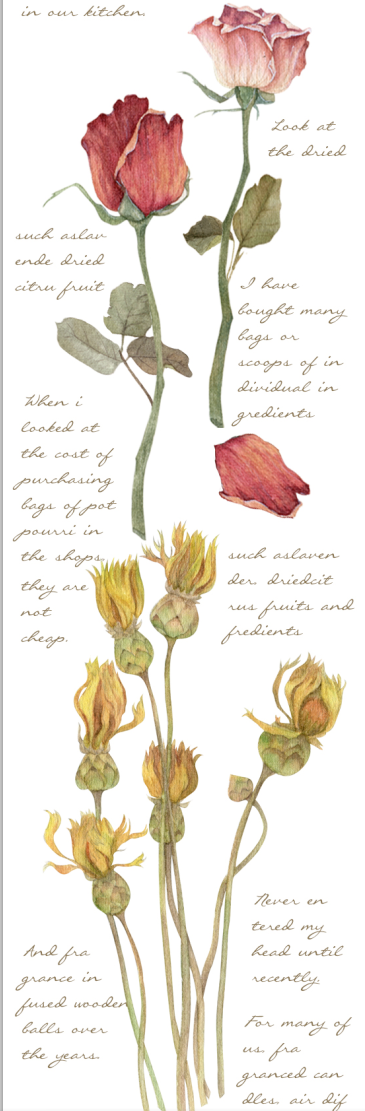 in our kitchen.
Look at
the dried
such aslav
ende dried
citru fruit
I have
bought many
bags or
scoops of in
dividual in
gredients
When i
looked at
the cost of
purchasing
bags of pot
pourri in
the shops,
they are
not
cheap.
such aslaven
der, driedcit
rus fruits and
fredients
Never en
tered my
head until
recently.
And fra
grance in
fused wooden
balls over
the years.
For many of
us, fra
granced can
dles, air dif